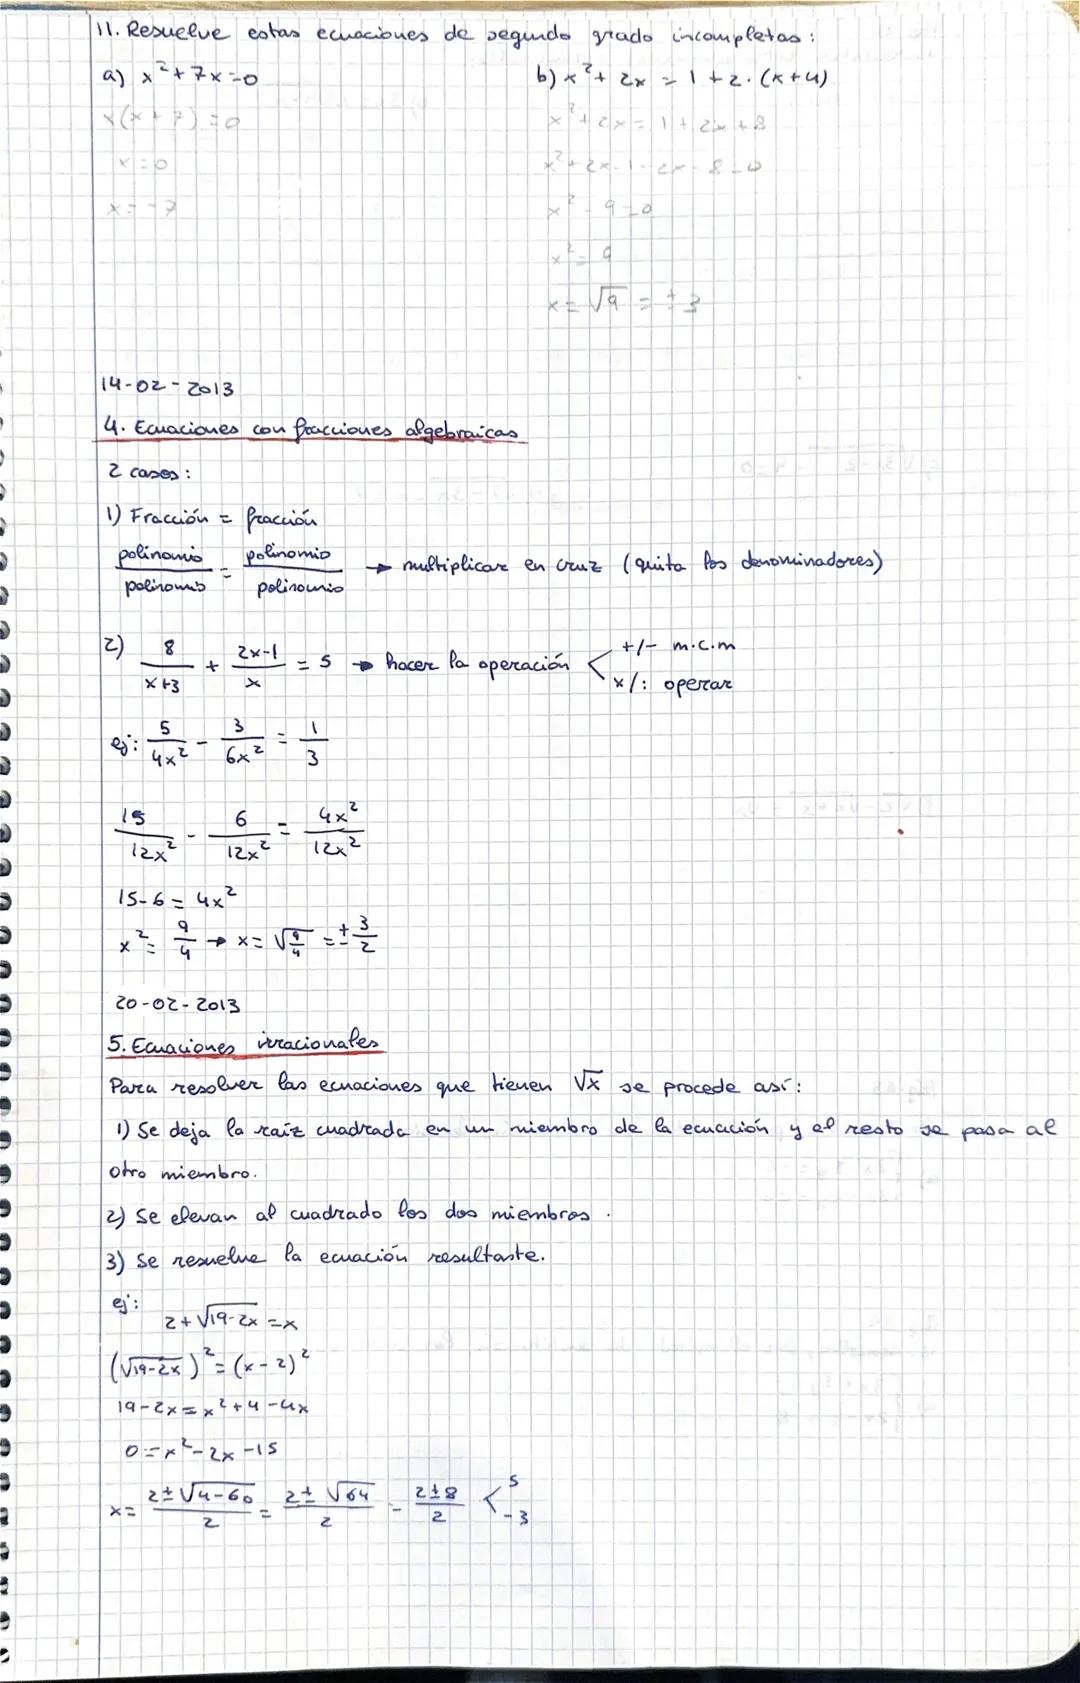 11. Resuelve estas ecuaciones de segundo grado incompletas:
a) x²+7x=0
x(x+7)=0
x=0
x=-7
b) x²+2x = 1+2·(x+4)
x²+2x=1+2x+8
x²+2x-1-2x-8=0
x²-9=0
x²=9
x=√9 = ±3
14-02-2013
4. Ecuaciones con fracciones algebraicas
2 casos:
1) Fracción = fracción
polinomio/polinomio = polinomio/polinomio → multiplicar en cruz (quita los denominadores)
2) 8/(x+3) + (2x-1)/x = 5 → hacer la operación < +/- m.c.m
x/: operar
ej: 5/4x² - 3/6x² = 1/3
15/12x² - 6/12x² = 4x²/12x²
15-6=4x²
x²=9/4 → x=√(9/4) = ±3/2
20-02-2013
5. Ecuaciones irracionales
Para resolver las ecuaciones que tienen √x se procede así:
1) Se deja la raíz cuadrada en un miembro de la ecuación y el resto se pasa al
otro miembro.
2) Se elevan al cuadrado los dos miembros.
3) Se resuelve la ecuación resultante.
ej:
2+√(19-2x) = x
(√(19-2x))² = (x-2)²
19-2x=x²+4-4x
0=x²-2x-15
x= (2±√(4-60))/2 = (2±√64)/2 = (2±8)/2 < 5
-3